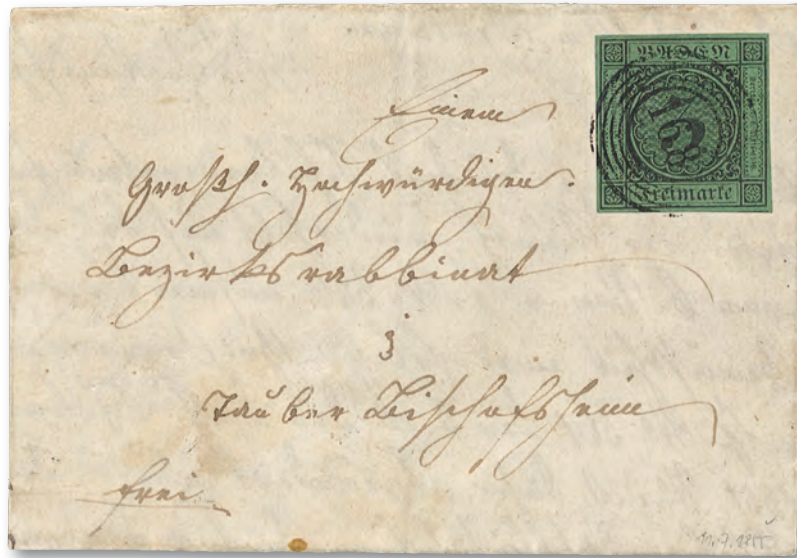 BADEN
Freimarke
168
Einem
Großh. Hochwürdigen.
Bezirksrabbinat
z
Tauber Bischofsheim
frei
11.7.1855